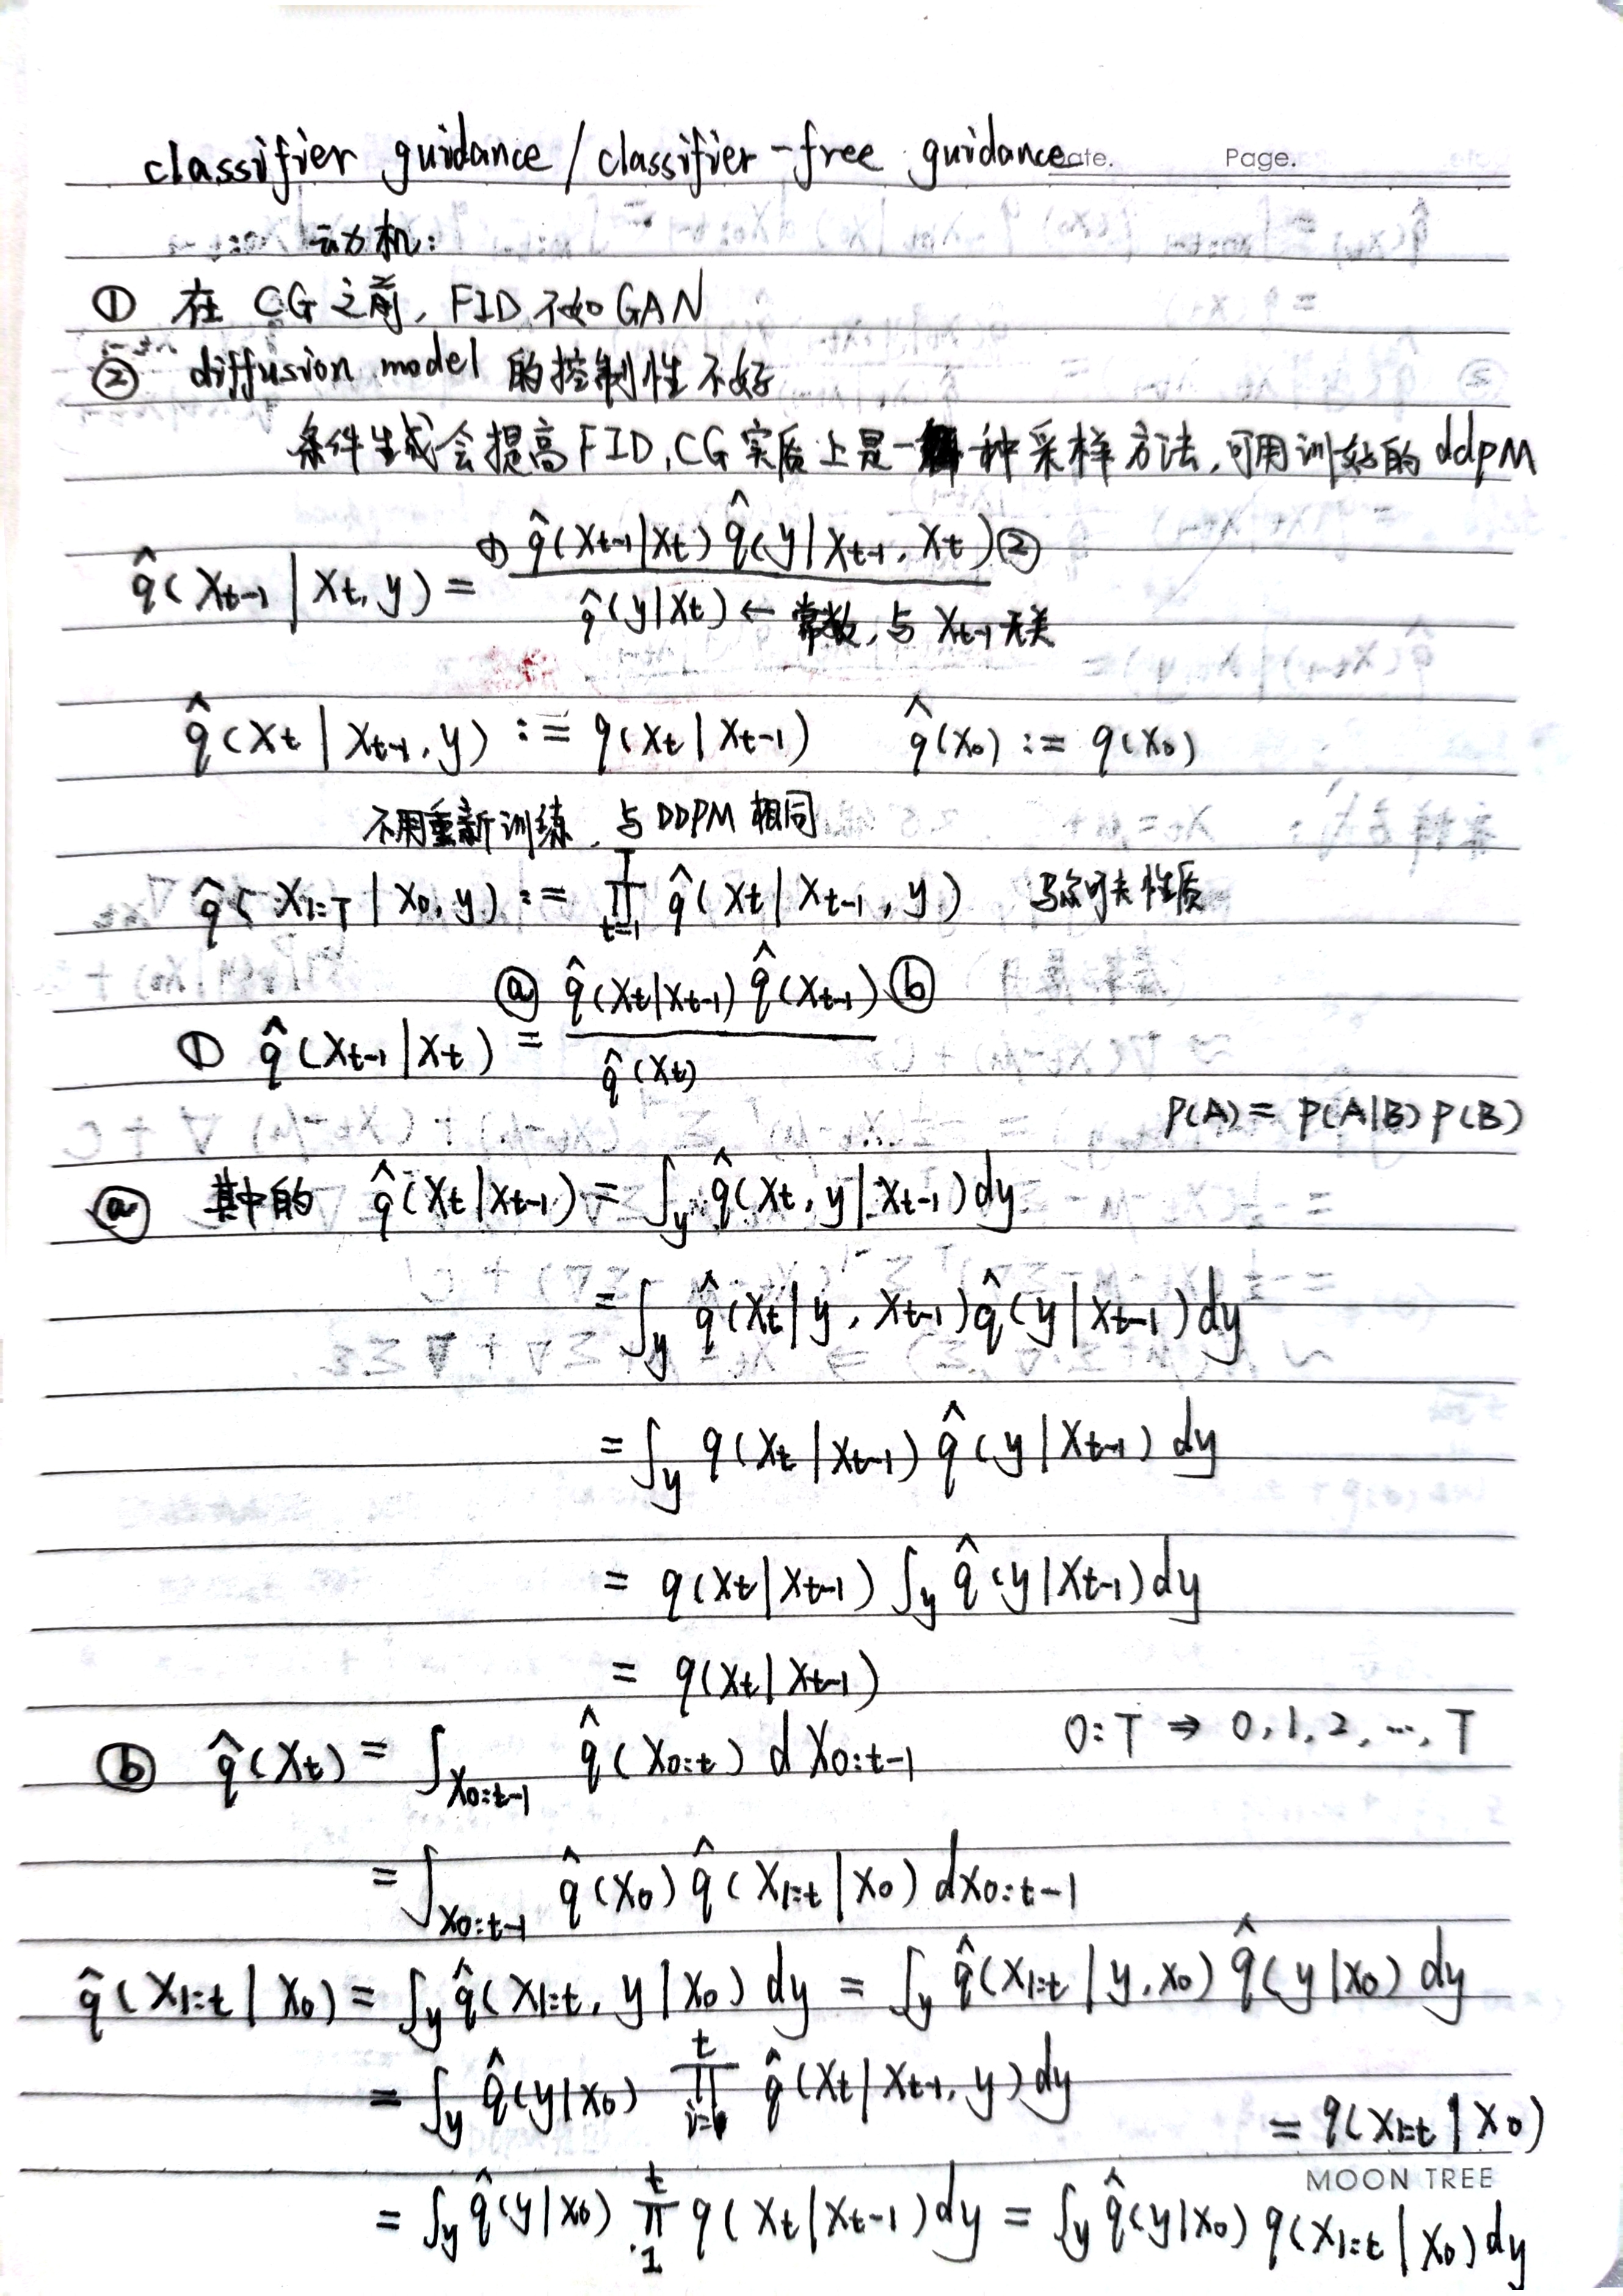 classifier guidance / classifier-free guidance Date. Page.
动机:
① 在 CG 之前, FID 不如 GAN
② diffusion model 的控制性不好
条件生成会提高 FID, CG 实质上是一种采样方法, 可用训好的 ddpM
① q̂(Xt-1|Xt) q̂(y|Xt-1, Xt) ②
q̂(Xt-1|Xt, y) =
q̂(y|Xt) ← 常数, 与 Xt-1 无关
q̂(Xt|Xt-1, y) := q(Xt|Xt-1) q̂(X0) := q(X0)
不用重新训练, 与 DDPM 相同
q̂(X1:T|X0, y) := ∏_{t=1}^{T} q̂(Xt|Xt-1, y) 马尔可夫性质
ⓐ q̂(Xt|Xt-1) q̂(Xt-1) ⓑ
① q̂(Xt-1|Xt) =
q̂(Xt)
P(A) = P(A|B) P(B)
ⓐ 其中的 q̂(Xt|Xt-1) = ∫y q̂(Xt, y|Xt-1) dy
= ∫y q̂(Xt|y, Xt-1) q̂(y|Xt-1) dy
= ∫y q(Xt|Xt-1) q̂(y|Xt-1) dy
= q(Xt|Xt-1) ∫y q̂(y|Xt-1) dy
= q(Xt|Xt-1)
0:T ⇒ 0, 1, 2, ···, T
ⓑ q̂(Xt) = ∫X0:t-1 q̂(X0:t) d X0:t-1
= ∫X0:t-1 q̂(X0) q̂(X1:t|X0) dX0:t-1
q̂(X1:t|X0) = ∫y q̂(X1:t, y|X0) dy = ∫y q̂(X1:t|y, X0) q̂(y|X0) dy
= ∫y q̂(y|X0) ∏_{i=1}^{t} q̂(Xt|Xt-1, y) dy
= q(X1:t|X0)
MOON TREE
= ∫y q̂(y|X0) ∏_{1}^{t} q(Xt|Xt-1) dy = ∫y q̂(y|X0) q(X1:t|X0) dy